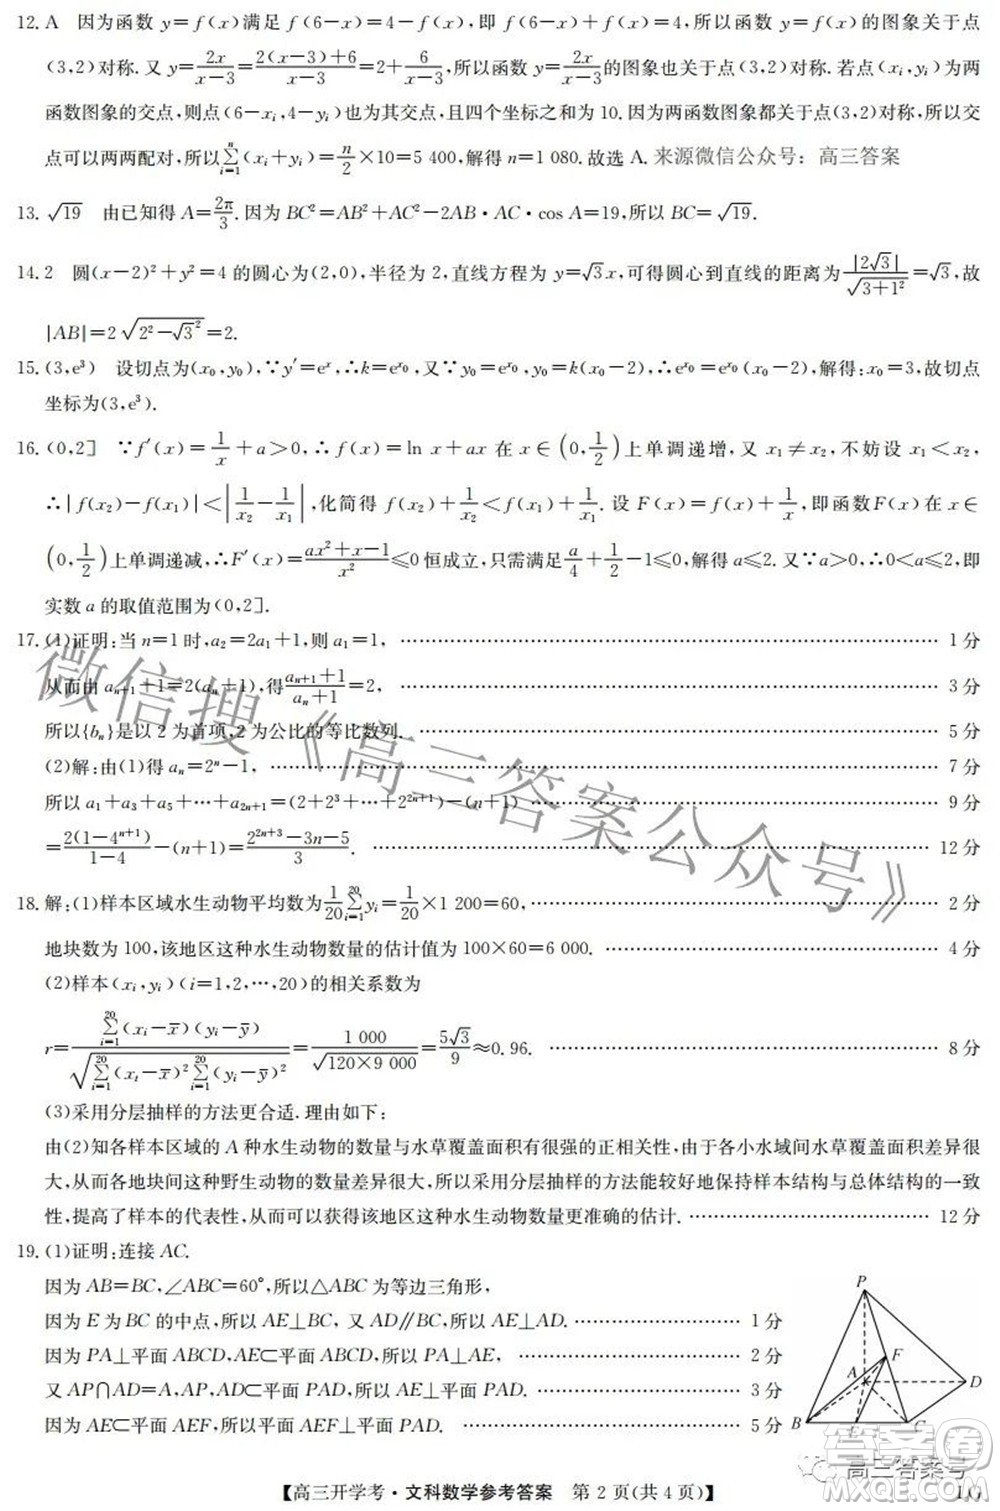 12. A 因为函数 y=f(x)满足 f(6-x)=4-f(x),即 f(6-x)+f(x)=4,所以函数 y=f(x)的图象关于点
(3,2)对称. 又 y=2x/(x-3)=(2(x-3)+6)/(x-3)=2+6/(x-3),所以函数 y=2x/(x-3)的图象也关于点(3,2)对称. 若点(xᵢ,yᵢ)为两
函数图象的交点,则点(6-xᵢ,4-yᵢ)也为其交点,且四个坐标之和为 10. 因为两函数图象都关于点(3,2)对称,所以交
点可以两两配对,所以∑ⁿᵢ₌₁(xᵢ+yᵢ)=n/2×10=5 400,解得 n=1 080. 故选 A. 来源微信公众号：高三答案
13. √19 由已知得 A=2π/3. 因为 BC²=AB²+AC²-2AB·AC·cos A=19,所以 BC=√19.
14. 2 圆(x-2)²+y²=4 的圆心为(2,0),半径为 2,直线方程为 y=√3x,可得圆心到直线的距离为|2√3|/√(3+1²)=√3,故
|AB|=2√(2²-√3²)=2.
15. (3,e³) 设切点为(x₀,y₀),∵y′=eˣ,∴k=e^x₀,又∵y₀=e^x₀,y₀=k(x₀-2),∴e^x₀=e^x₀(x₀-2),解得:x₀=3,故切点
坐标为(3,e³).
16. (0,2] ∵f′(x)=1/x+a>0,∴f(x)=ln x+ax 在 x∈(0,1/2)上单调递增,又 x₁≠x₂,不妨设 x₁<x₂,
∴|f(x₂)-f(x₁)|<|1/x₂-1/x₁|,化简得 f(x₂)+1/x₂<f(x₁)+1/x₁. 设 F(x)=f(x)+1/x,即函数F(x)在 x∈
(0,1/2)上单调递减,∴F′(x)=(ax²+x-1)/x²≤0 恒成立,只需满足a/4+1/2-1≤0,解得 a≤2. 又∵a>0,∴0<a≤2,即
实数 a 的取值范围为(0,2].
17. (1)证明:当 n=1 时,a₂=2a₁+1,则 a₁=1, …… 1 分
从而由 aₙ₊₁+1=2(aₙ+1),得(aₙ₊₁+1)/(aₙ+1)=2, …… 3 分
所以{bₙ}是以 2 为首项,2 为公比的等比数列. …… 5 分
(2)解:由(1)得 aₙ=2ⁿ-1, …… 7 分
所以 a₁+a₃+a₅+…+a₂ₙ₊₁=(2+2³+…+2²ⁿ⁺¹)-(n+1) …… 9 分
=2(1-4ⁿ⁺¹)/(1-4)-(n+1)=(2²ⁿ⁺³-3n-5)/3. …… 12 分
18. 解:(1)样本区域水生动物平均数为1/20∑²⁰ᵢ₌₁yᵢ=1/20×1 200=60, …… 2 分
地块数为 100,该地区这种水生动物数量的估计值为 100×60=6 000. …… 4 分
(2)样本(xᵢ,yᵢ)(i=1,2,…,20)的相关系数为
r=∑²⁰ᵢ₌₁(xᵢ-x̄)(yᵢ-ȳ)/√(∑²⁰ᵢ₌₁(xᵢ-x̄)²∑²⁰ᵢ₌₁(yᵢ-ȳ)²)=1 000/√(120×9 000)=5√3/9≈0.96. …… 8 分
(3)采用分层抽样的方法更合适. 理由如下:
由(2)知各样本区域的 A 种水生动物的数量与水草覆盖面积有很强的正相关性,由于各小水域间水草覆盖面积差异很
大,从而各地块间这种野生动物的数量差异很大,所以采用分层抽样的方法能较好地保持样本结构与总体结构的一致
性,提高了样本的代表性,从而可以获得该地区这种水生动物数量更准确的估计. …… 12 分
19. (1)证明:连接 AC.
因为 AB=BC,∠ABC=60°,所以△ABC 为等边三角形,
因为 E 为 BC 的中点,所以 AE⊥BC, 又 AD∥BC,所以 AE⊥AD. …… 1 分
因为 PA⊥平面 ABCD,AE⊂平面 ABCD,所以 PA⊥AE, …… 2 分
又 AP∩AD=A,AP,AD⊂平面 PAD,所以 AE⊥平面 PAD. …… 3 分
因为 AE⊂平面 AEF,所以平面 AEF⊥平面 PAD. …… 5 分
P
F
A
D
B
E
C
微信搜《高三答案公众号》
高三答案号
答案圈
【高三开学考·文科数学参考答案 第 2 页(共 4 页)】